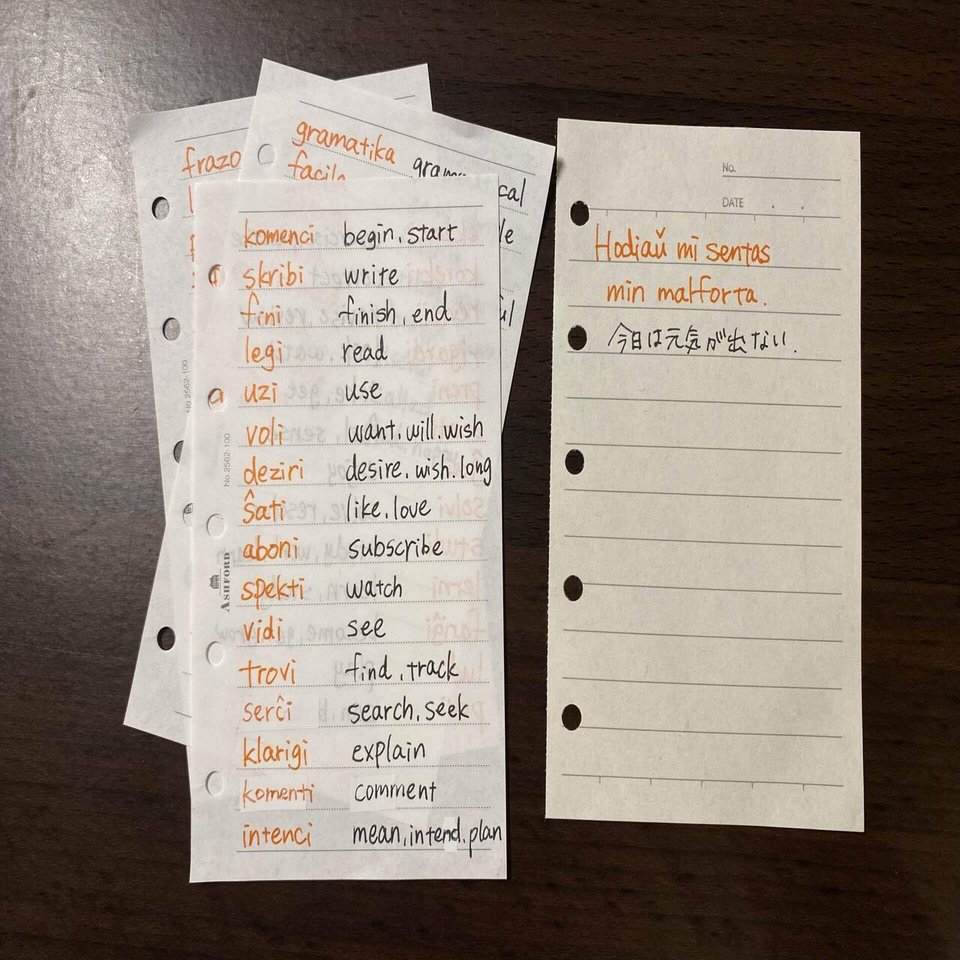 frazo
gramatika
komenci begin, start
skribi write
fini finish, end
legi read
uzi use
voli want, will, wish
deziri desire, wish, long
ŝati like, love
aboni subscribe
spekti watch
vidi see
trovi find, track
serĉi search, seek
klarigi explain
komenti comment
intenci mean, intend, plan
No. 2562-100
No. 2562-100
ASHFORD
No.
DATE . .
Hodiaŭ mi sentas
min malforta.
今日は元気が出ない.